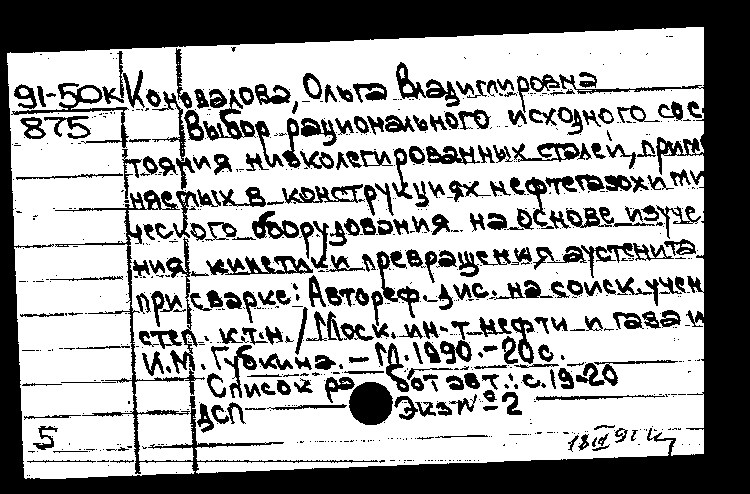 91-50к Коновалова, Ольга Владимировна
875 Выбор рационального исходного сос-
тояния низколегированных сталей, приме
няемых в конструкциях нефтегазохими
ческого оборудования на основе изуче
ния кинетики превращения аустенита
при сварке: Автореф. дис. на соиск. учен
степ. к.т.н. / Моск. ин-т нефти и газа и
И.М. Губкина. - М. 1990. - 20 с.
Список работ авт.: с. 19-20
ДСП Экз № 2
5